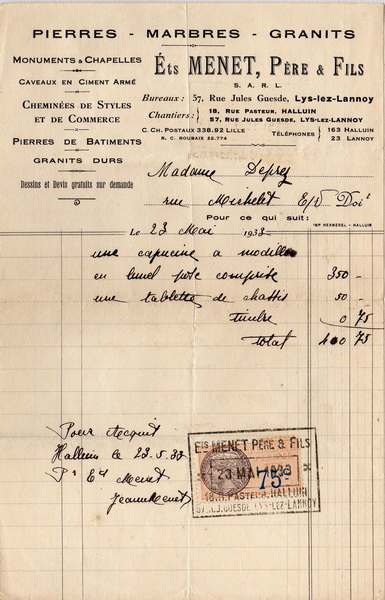 PIERRES - MARBRES - GRANITS
MONUMENTS & CHAPELLES
CAVEAUX EN CIMENT ARMÉ
CHEMINÉES DE STYLES
ET DE COMMERCE
PIERRES DE BATIMENTS
GRANITS DURS
Dessins et Devis gratuits sur demande
Éts MENET, PÈRE & FILS
S. A. R. L.
Bureaux : 57, Rue Jules Guesde, Lys-lez-Lannoy
Chantiers : 18, RUE PASTEUR, HALLUIN
57, RUE JULES GUESDE, LYS-LEZ-LANNOY
C. CH. POSTAUX 338.92 LILLE
R. C. ROUBAIX 22.774
TÉLÉPHONES 163 HALLUIN
23 LANNOY
Madame Deprez
rue Michelet E/V Doit
Pour ce qui suit:
IMP HERMEREL - HALLUIN
Le 23 Mai 1933
une capucine a modillon
en lunel pose comprise 350 -
une tablette de chassis 50 -
timbre 0 75
Total 400 75
Pour Acquit
Halluin le 23.5.33
Pr Ets Menet
Jeanne Menet
ETS MENET PÈRE & FILS
23 MAI 1933
75c
18, R. PASTEUR, HALLUIN
57, R. J. GUESDE, LYS-LEZ-LANNOY